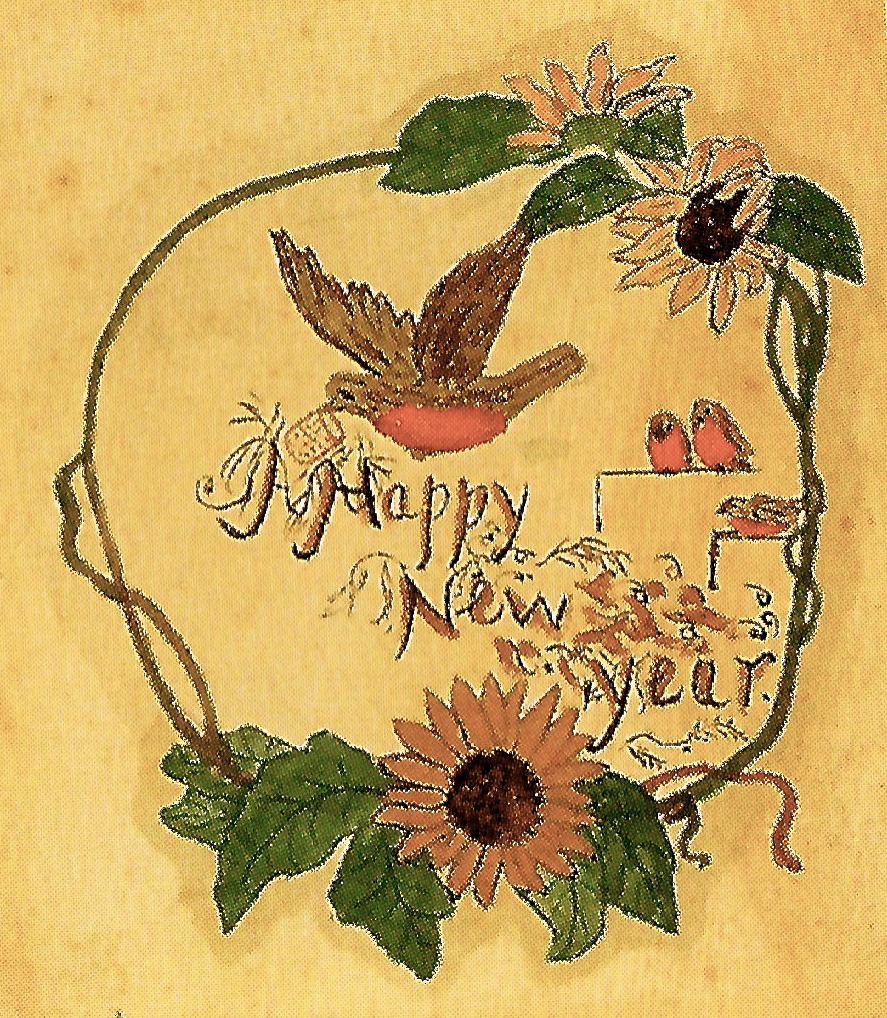 A Happy
New
year.